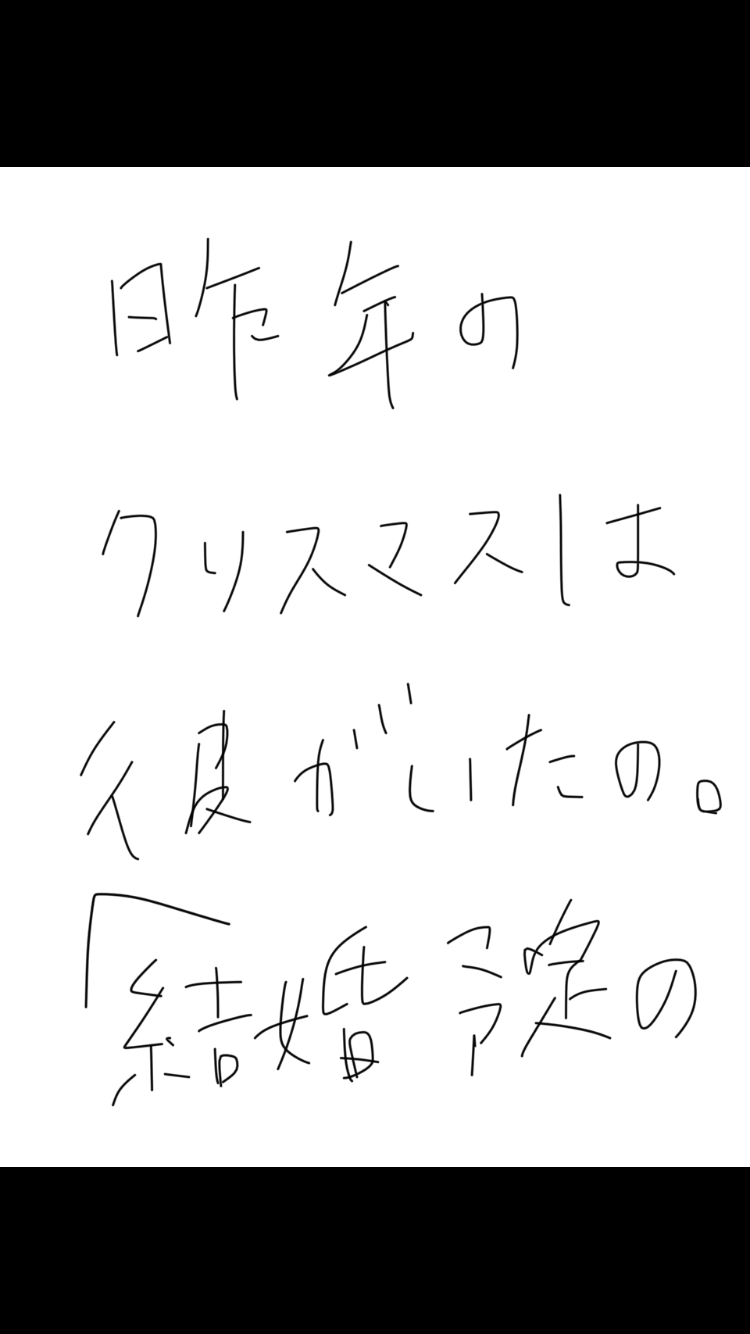 昨年の
クリスマスは
彼がいたの。
「結婚予定の